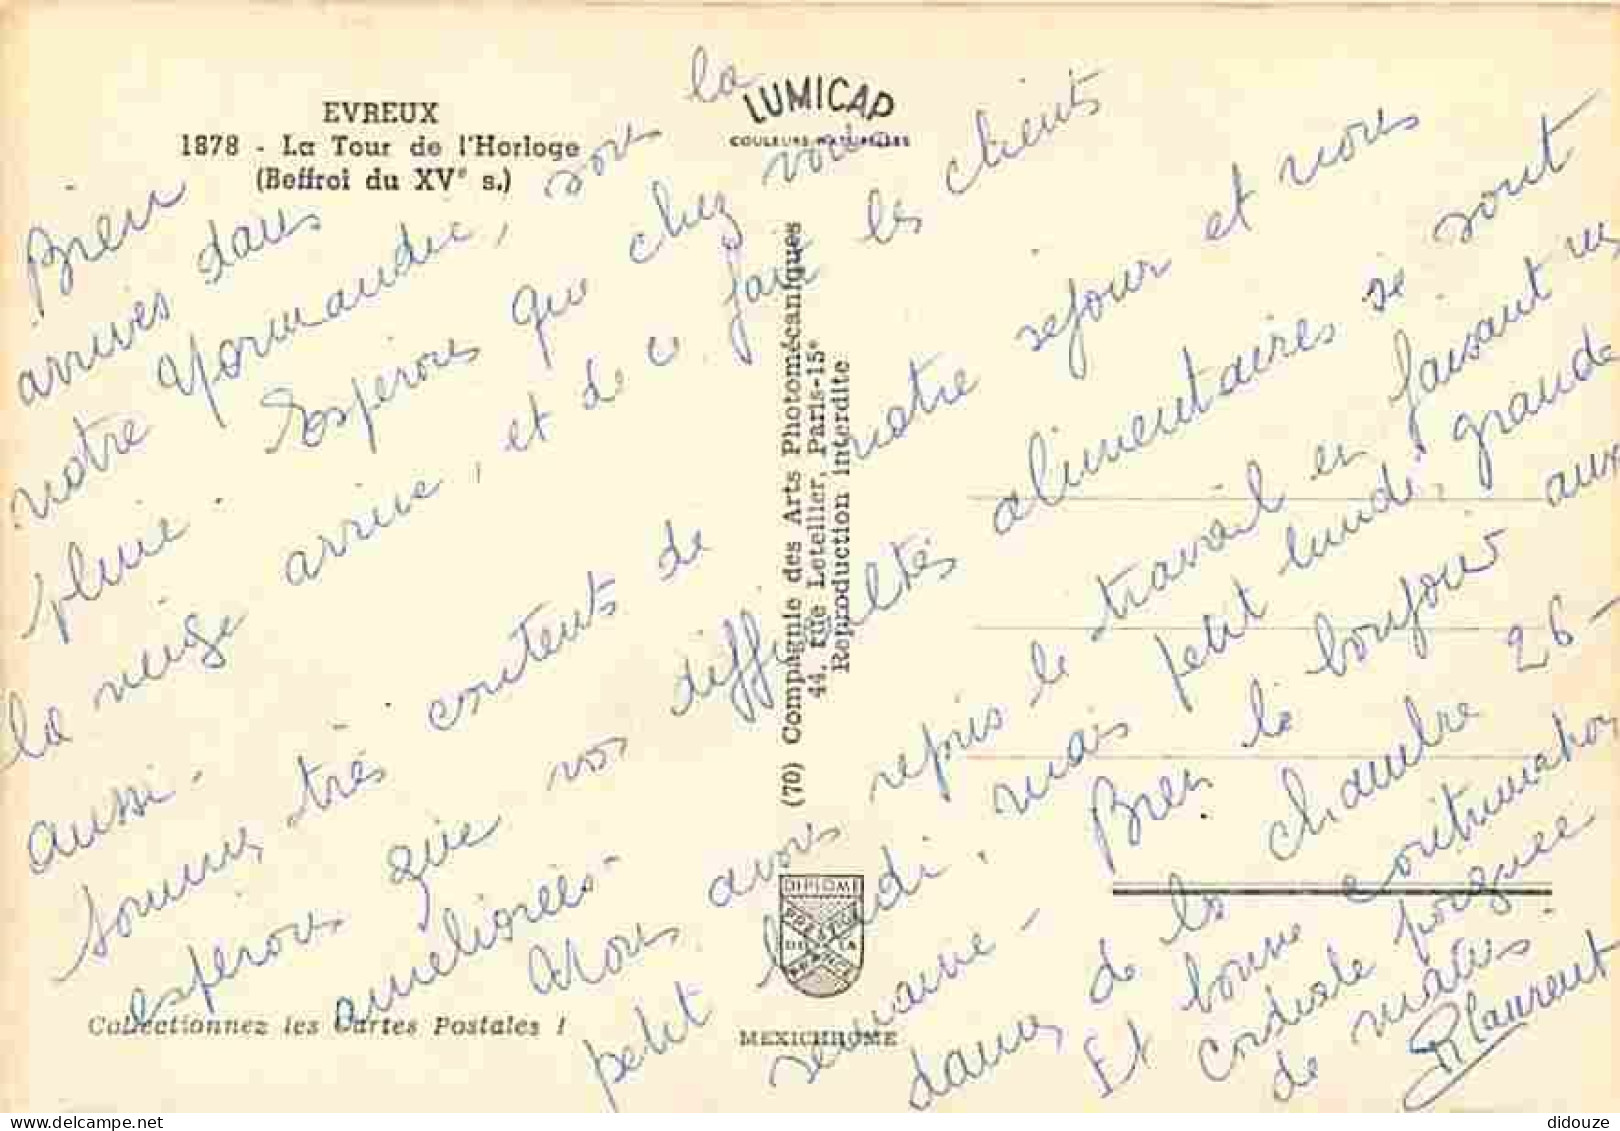 EVREUX
1878 - La Tour de l'Horloge
(Beffroi du XVe s.)
LUMICAP
COULEURS NATURELLES
Bien
arrivés dans
notre Normandie, sous la
pluie. Espérons que chez vous
la neige arrive, et de faire les clients
aussi.
Sommes très contents de notre séjour et nous
espérons que vos difficultés alimentaires se sont
améliorées -
Avons repris le travail en faisant un
petit lundi, mais petit lundi, grande
semaine - Bien le bonjour aux
dames de la chambre 26 -
Et bonne continuation
Cordiale poignée
de mains
Laurent
(70) Compagnie des Arts Photomécaniques
44, rue Letellier, Paris-15e
Reproduction interdite
DIPLOME
PRESTIGE
DE LA
FRANCE
MEXICHROME
Collectionnez les Cartes Postales !
didouze